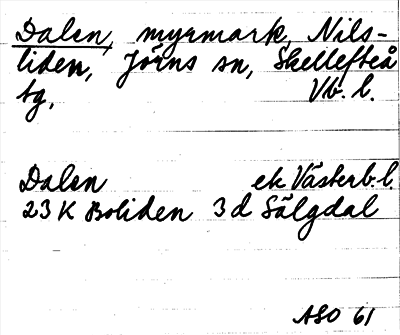 Dalen, myrmark, Nils-
liden, Jörns sn, Skellefteå
tg, Vb. l.
Dalen ek Västerb. l.
23 K Boliden 3 d Sälgdal
ASO 61